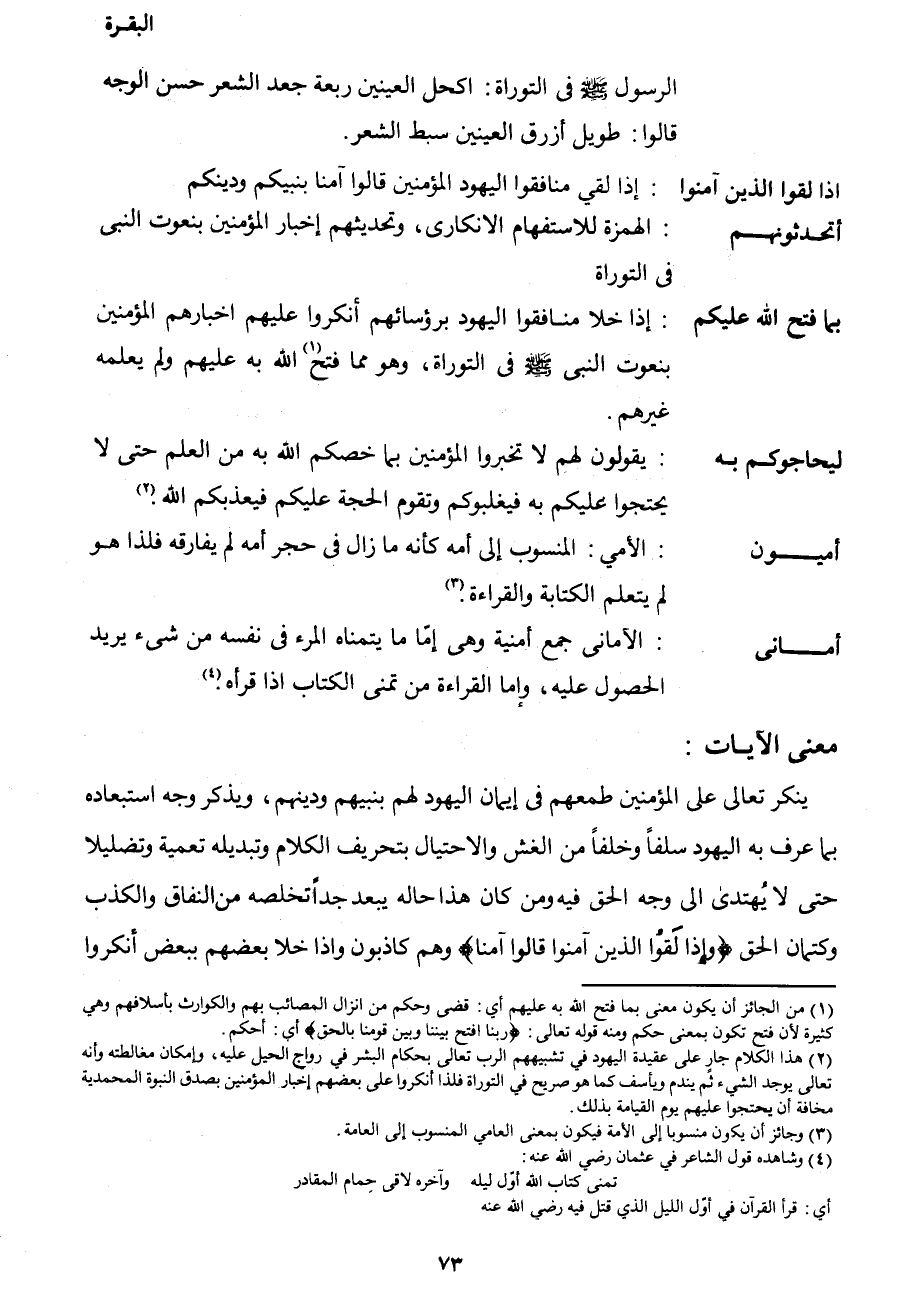 البقـرة
الرسول ﷺ فى التوراة: اكحل العينين ربعة جعد الشعر حسن الوجه
قالوا: طويل أزرق العينين سبط الشعر.
اذا لقوا الذين آمنوا : إذا لقي منافقوا اليهود المؤمنين قالوا آمنا بنبيكم ودينكم
أتحـدثونهـــم : الهمزة للاستفهام الانكارى، وتحديثهم إخبار المؤمنين بنعوت النبى
فى التوراة
بما فتح الله عليكم : إذا خلا منـافقوا اليهود برؤسائهم أنكروا عليهم اخبارهم المؤمنين
بنعوت النبى ﷺ فى التوراة، وهو مما فتح(١) الله به عليهم ولم يعلمه
غيرهم.
ليحاجوكـم بـه : يقولون لهم لا تخبروا المؤمنين بما خصكم الله به من العلم حتى لا
يحتجوا عليكم به فيغلبوكم وتقوم الحجة عليكم فيعذبكم الله.(٢)
أميـــــون : الأمي: المنسوب إلى أمه كأنه ما زال فى حجر أمه لم يفارقه فلذا هـو
لم يتعلم الكتابة والقراءة.(٣)
أمـــــانى : الأمانى جمع أمنية وهى إمّا ما يتمناه المرء فى نفسه من شىء يريد
الحصول عليه، وإما القراءة من تمنى الكتاب اذا قرأه.(٤)
معنى الآيـات :
ينكر تعالى على المؤمنين طمعهم فى إيمان اليهود لهم بنبيهم ودينهم، ويذكر وجه استبعاده
بما عرف به اليهود سلفاً وخلفاً من الغش والاحتيال بتحريف الكلام وتبديله تعمية وتضليلا
حتى لا يُهتدىٰ الى وجه الحق فيه ومن كان هذا حاله يبعد جداً تخلصه من النفاق والكذب
وكتمان الحق ﴿وإذا لَقوُا الذين آمنوا قالوا آمنا﴾ وهم كاذبون واذا خلا بعضهم ببعض أنكروا
(١) من الجائز أن يكون معنى بما فتح الله به عليهم أي: قضى وحكم من انزال المصائب بهم والكوارث بأسلافهم وهي
كثيرة لأن فتح تكون بمعنى حكم ومنه قوله تعالى: ﴿ربنا افتح بيننا وبين قومنا بالحق﴾ أي: أحكم.
(٢) هذا الكلام جارٍ على عقيدة اليهود في تشبيههم الرب تعالى بحكام البشر في رواج الحيل عليه، وإمكان مغالطته وأنه
تعالى يوجد الشيء ثُم يندم ويأسف كما هو صريح في التوراة فلذا أنكروا على بعضهم إخبار المؤمنين بصدق النبوة المحمدية
مخافة أن يحتجوا عليهم يوم القيامة بذلك.
(٣) وجائز أن يكون منسوبا إلى الأمة فيكون بمعنى العامي المنسوب إلى العامة.
(٤) وشاهده قول الشاعر في عثمان رضي الله عنه:
تمنى كتاب الله أوّل ليله وآخره لاقى حِمام المقادر
أي: قرأ القرآن في أوّل الليل الذي قتل فيه رضي الله عنه
٧٣